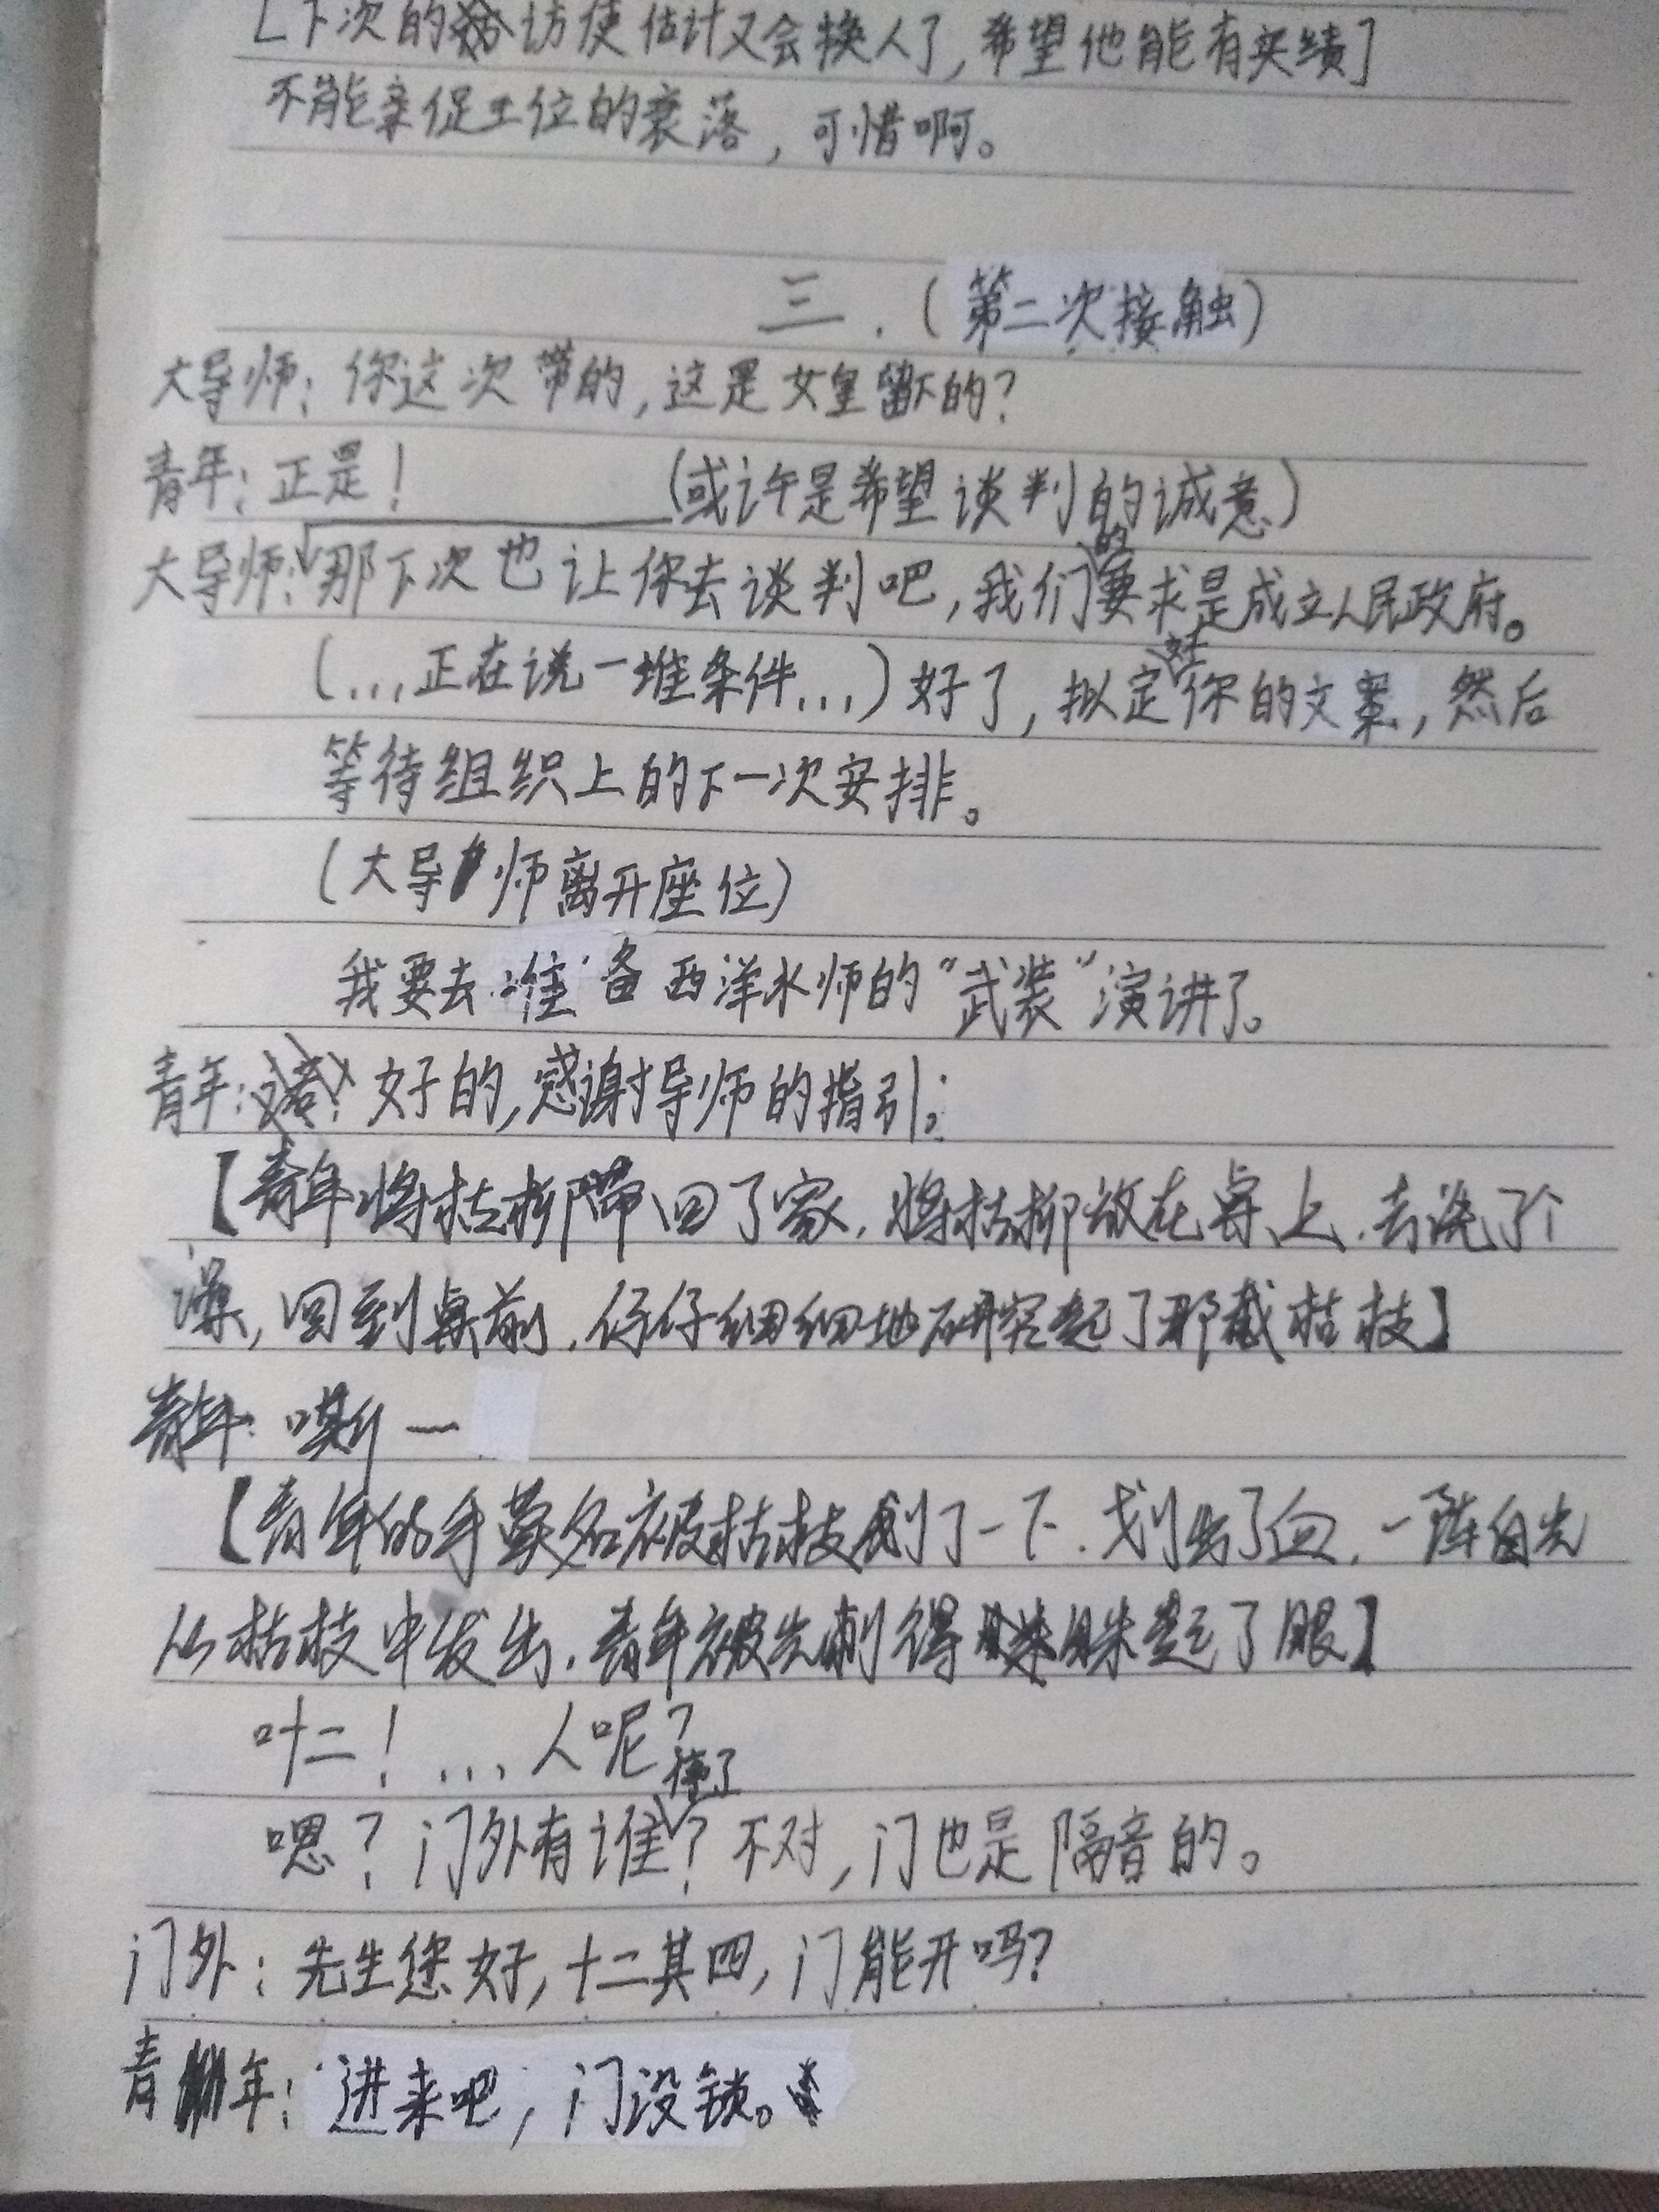 [下次的访使估计又会换人了,希望他能有实绩]
不能亲促王位的衰落,可惜啊。
三.(第二次接触)
大导师:你这次带的,这是女皇留下的?
青年:正是!
(或许是希望谈判的诚意)
大导师:那下次也让你去谈判吧,我们的要求是成立人民政府。
(...正在说一堆条件...)好了,拟定好你的文案,然后
等待组织上的下一次安排。
(大导师离开座位)
我要去准备西洋水师的“武装”演讲了。
青年:好的,感谢导师的指引。
【青年将枯柳带回了家,将枯柳放在桌上,去洗了个
澡,回到桌前,仔仔细细地研究起了那截枯枝】
青年:嘶一
【青年的手莫名被枯枝划了一下,划出了血,一阵白光
从枯枝中发出,青年被光刺得眯起了眼】
叶二!...人呢?
嗯?门外有谁来了?不对,门也是隔音的。
门外:先生您好,十二其四,门能开吗?
青年:进来吧,门没锁。